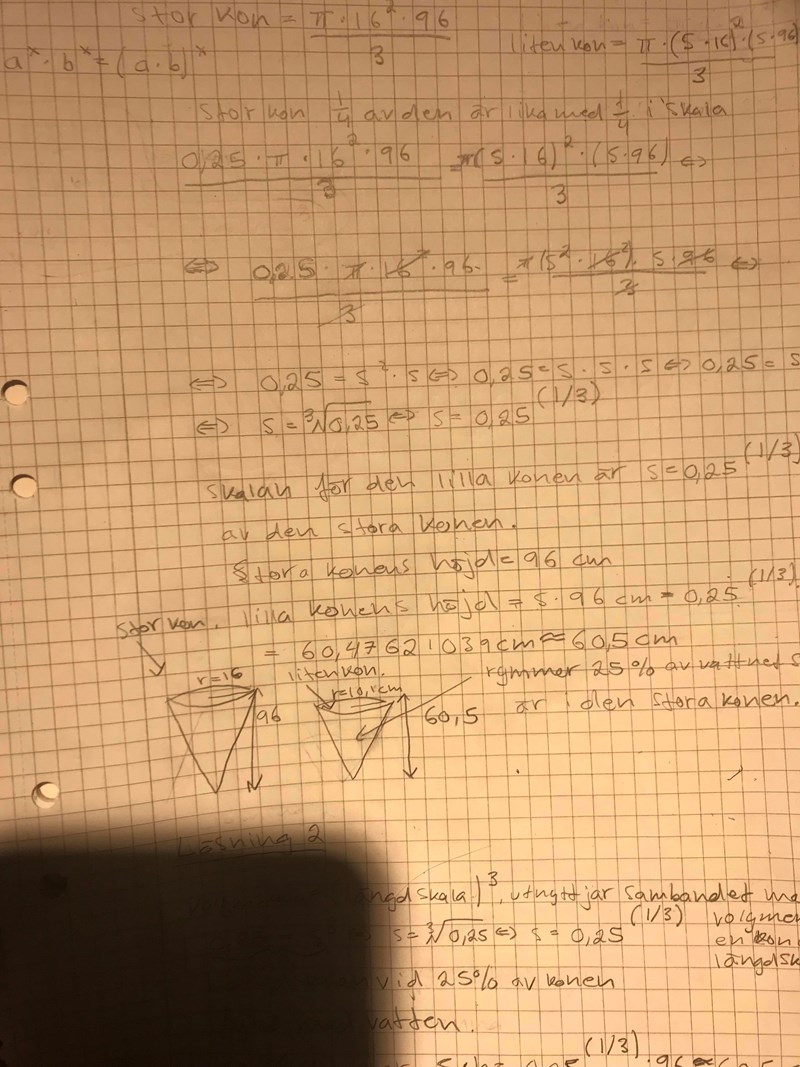 Stor kon = π · 16² · 96 / 3
liten kon = π · (s · 16)² · (s · 96) / 3
aˣ · bˣ = (a · b)ˣ
Stor kon 1/4 av den är lika med 1/4 i skala
0,25 · π · 16² · 96 / 3 = π(s · 16)² · (s · 96) / 3 ⇔
⇔ 0,25 · π · 16² · 96 / 3 = π(s² · 16²) · s · 96 / 3 ⇔
⇔ 0,25 = s² · s ⇔ 0,25 = s · s · s ⇔ 0,25 = s
⇔ s = ³√0,25 ⇔ s = 0,25^(1/3)
skalan för den lilla konen är s = 0,25^(1/3)
av den stora konen.
Stora konens höjd = 96 cm
lilla konens höjd = s · 96 cm = 0,25^(1/3)
= 60,47621039 cm ≈ 60,5 cm
stor kon.
r=16
96
liten kon.
r=10,1cm
60,5
rymmer 25% av vattnet s
är i den stora konen.
Lösning 2
ngdskala)³, utnyttjar sambandet
s = ³√0,25 ⇔ s = 0,25^(1/3)
volymen
en kon
längdsk
vid 25% av konen
vatten.
(1/3) · 96